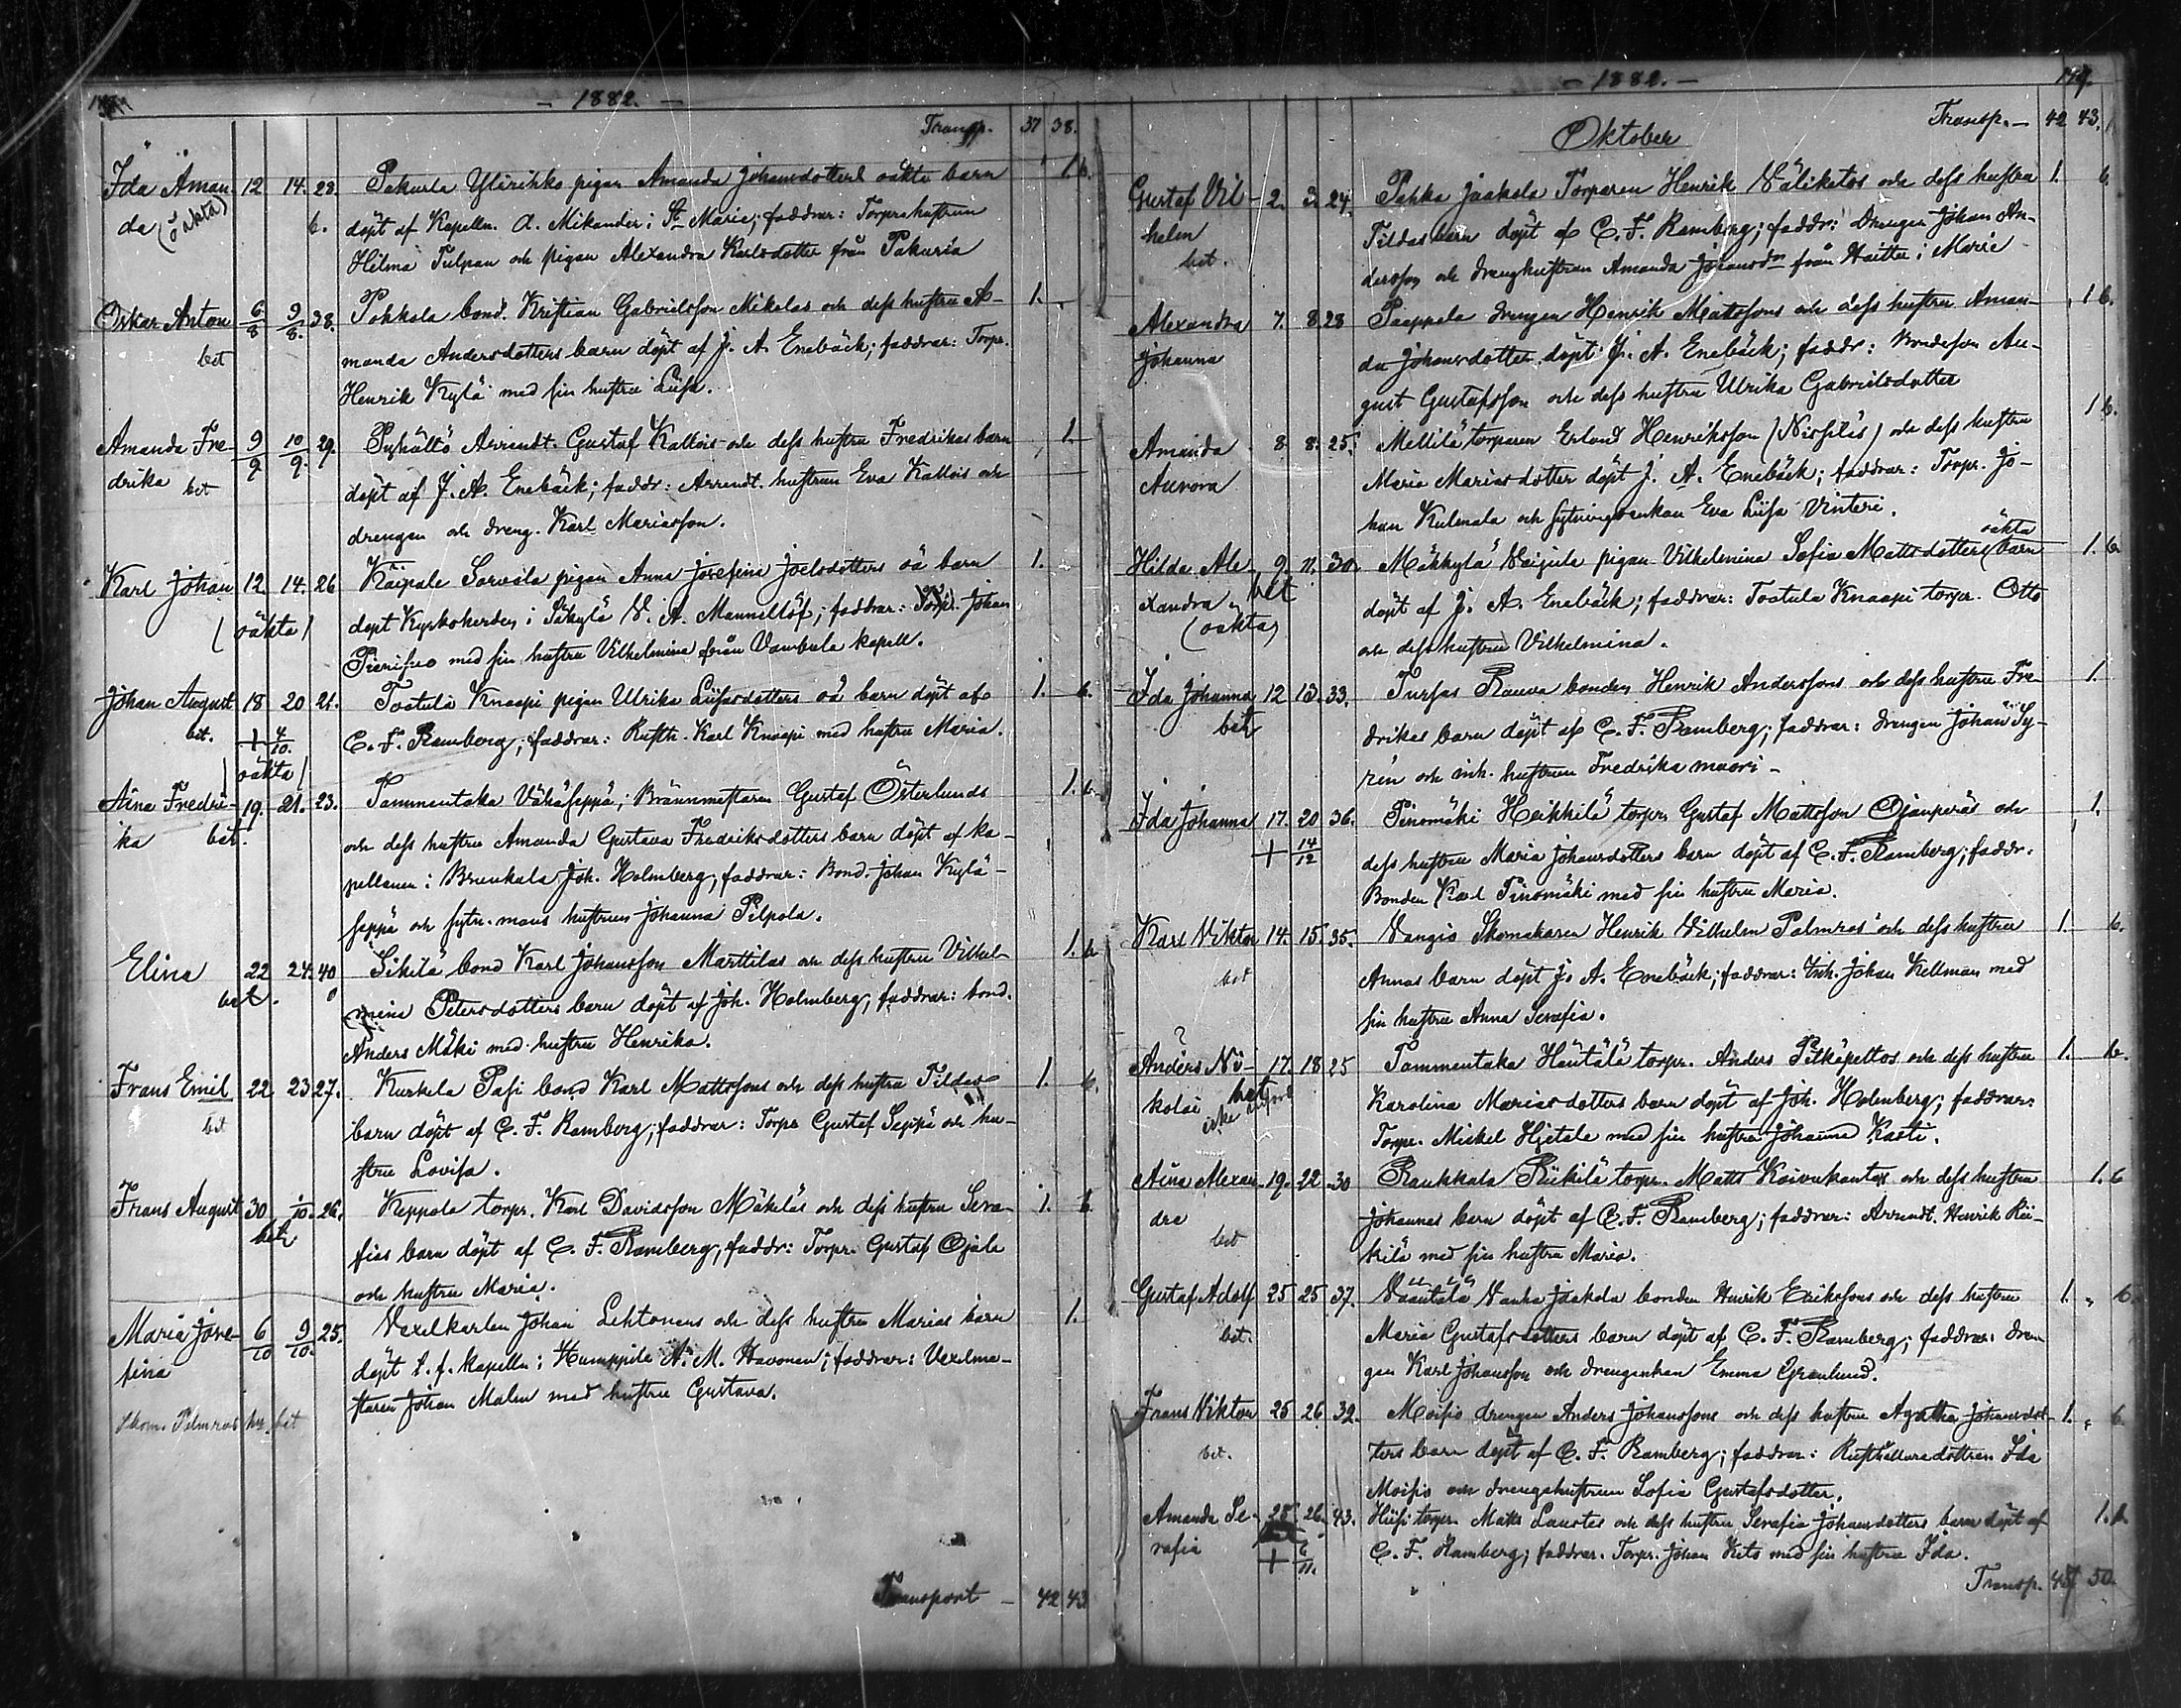 - 1882. -
Transp. 37 38.
Ida Aman- 12 14. 28. Pakurla Ylirihko pigan Amanda Johansdotters oäkta barn 1 b.
da (oäkta) 6. döpt af Kapelln. A. Mikander i St Marie; faddrar: Torparehustrun
Hilma Tulpan och pigan Alexandra Karlsdotter från Pakurla
Oskar Anton 6/8 9/8. 38. Pohkola bond. Kristian Gabrielsson Mikolas och dess hustru A- 1.
bet manda Andersdotters barn döpt af J. A. Enebäck; faddrar: Torpr.
Henrik Kylä med sin hustru Liisa.
Amanda Fre- 9/9 10/9. 29. Pyhältö Arrendt. Gustaf Kallois och dess hustru Fredrikas barn 1.
drika bet döpt af J. A. Enebäck; faddr: Arrendt. hustrun Eva Kallois och
drengen och dreng. Karl Mariasson.
Karl Johan 12 14. 26 Karpale Sorvola pigan Anna Josefina Joelsdotters oä barn 1.
(oäkta) döpt Kyrkoherden i Säkylä V. A. Mannelöf; faddrar: Torpr. Johan
med sin hustru Vilhelmina från Vambula kapell.
Johan August 18 20 21. Toatula Knaapi pigan Ulrika Liisasdotters oä barn döpt af 1. b.
bet. † 4/10. C. F. Ramberg; faddrar: Rusth. Karl Knaapi med hustru Maria.
(oäkta)
Aina Fredri- 19. 21. 23. Tammentaka Vähäseppä, Brännmästaren Gustaf Österlunds 1. b.
ka bet. och dess hustru Amanda Gustava Fredriksdotters barn döpt af ka-
pellanen i Brunkala Joh. Holmberg; faddrar: Bond. Johan Kylä-
seppä och sytn. mans hustrun Johanna Pilpola.
Elina 22 24. 40 Sikilä bond Karl Johansson Marttilas och dess hustru Vilhel- 1. b
bet. mina Petersdotters barn döpt af Joh. Holmberg; faddrar: bond.
Anders Mäki med hustru Henrika.
Frans Emil 22 23 27. Kurkela Pasi bond Karl Mattssons och dess hustru Tildas 1. b.
bet barn döpt af C. F. Ramberg; faddrar: Torpr Gustaf Seppä och hu-
stru Lovisa.
Frans August 30 1/10. 26. Keppola torpr. Karl Davidsson Mäkeläs och dess hustru Sera- 1. b
bet fias barn döpt af C. F. Ramberg; faddr: Torpr. Gustaf Ojala
och hustru Maria.
Maria Jose- 6/10 9/10. 25. Vexelkarlen Johan Lehtonens och dess hustru Marias barn 1.
fina döpt t. f. kapelln i Humppila A. M. Havonen; faddrar: Vexelmä-
staren Johan Malm med hustru Gustava.
Skom. Palmros hu. bet
Transport - 42 43
- 1882. - 147.
Oktober Transp. - 42 43.
Gustaf Vil- 2. 3. 24. Pehka Jaakola Torparen Henrik Välikatos och dess hustru 1. b.
helm Tildas barn döpt af C. F. Ramberg; faddr: Drengen Johan An-
bet. dersson och drenghustrun Amanda Johansdr från Haitte i Marie
Alexandra 7. 8. 28 Paappela drengen Henrik Mattssons och dess hustru Aman- 1 b.
Johanna da Johansdotter döpt J. A. Enebäck; faddr: Bondeson Au-
gust Gustafsson och dess hustru Ulrika Gabrielsdotter
Amanda 8. 8. 25. Mellilä torparen Erland Henriksson (Nissiläs) och dess hustru 1 b.
Aurora Maria Mariasdotter döpt J. A. Enebäck; faddrar: Torpr. Jo-
han Kulmala och sytningsenkan Eva Liisa Vinteri.
Hilda Ale- 9. 11. 30. Mäkkylä pigan Vilhelmina Sofia Mattsdotters oäkta barn 1. b
xandra bet döpt af J. A. Enebäck; faddrar: Toatula Knaapi torpr. Otto
(oäkta) och dess hustru Vilhelmina.
Ida Johanna 12 13. 33. Tursas Rauva bonden Henrik Anderssons och dess hustru Fre- 1.
bet drikas barn döpt af C. F. Ramberg; faddrar: drengen Johan Sy-
rén och inh. hustrun Fredrika
Ida Johanna 17. 20 36. Tinomäki Heikkilä torpr. Gustaf Mattsson Ojanperäs och 1.
† 14/12 dess hustru Maria Johansdotters barn döpt af C. F. Ramberg; faddr.
Bonden Karl Tinomäki med sin hustru Maria.
Karl Viktor 14. 15. 35. Vangio Skomakaren Henrik Vilhelm Palmros och dess hustru 1. b.
bet Annas barn döpt J. A. Enebäck; faddrar: Inh. Johan Kellman med
sin hustru Anna Serafia.
Anders Ni- 17. 18 25 Tammentaka Häntälä torpr. Anders Pitkäpeltos och dess hustru 1. b.
kolai bet Karolina Mariasdotters barn döpt af Joh. Holmberg; faddrar:
Torpr. Miskel Hjetala med sin hustru Johanna Kasti.
Aina Alexan- 19. 22. 30 Raukkala Riikilä torpr. Matts Koivukantas och dess hustru 1. b
dra Johannas barn döpt af C. F. Ramberg; faddrar: Arrendt. Henrik Rii-
bet kilä med sin hustru Maria.
Gustaf Adolf 25 25 37. Vääntälä Vanha Jaakola bonden Henrik Erikssons och dess hustru 1. b.
bet. Maria Gustafsdotters barn döpt af C. F. Ramberg; faddrar: dren
gen Karl Johansson och drengenkan Emma Granlund.
Frans Viktor 25 26 32. Moisio drengen Anders Johanssons och dess hustru Agatha Johansdot- 1. b.
bet. ters barn döpt af C. F. Ramberg; faddrar: Rusthållaredottren Ida
Moisio och drengehustrun Sofia Gustafsdotter.
Amanda Se- 25. 26. 43. Hiisi torpr. Matts Laustes och dess hustru Serafia Johansdotters barn döpt af 1. b.
rafia † 6/11. C. F. Ramberg; faddrar. Torpr. Johan Keto med sin hustru Ida.
Transp. 50.